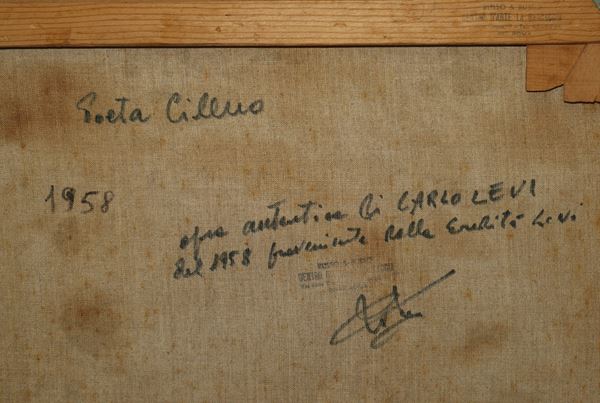 Poeta Cileno
1958
opera autentica di CARLO LEVI
del 1958 proveniente dalla Eredità Levi
CENTRO